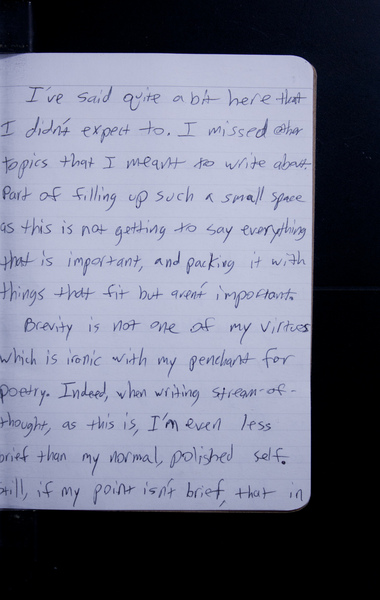 I've said quite a bit here that
I didn't expect to. I missed other
topics that I meant to write about.
Part of filling up such a small space
as this is not getting to say everything
that is important, and packing it with
things that fit but aren't important.
Brevity is not one of my virtues
which is ironic with my penchant for
poetry. Indeed, when writing stream-of-
thought, as this is, I'm even less
brief than my normal, polished self.
Still, if my point isn't brief, that in